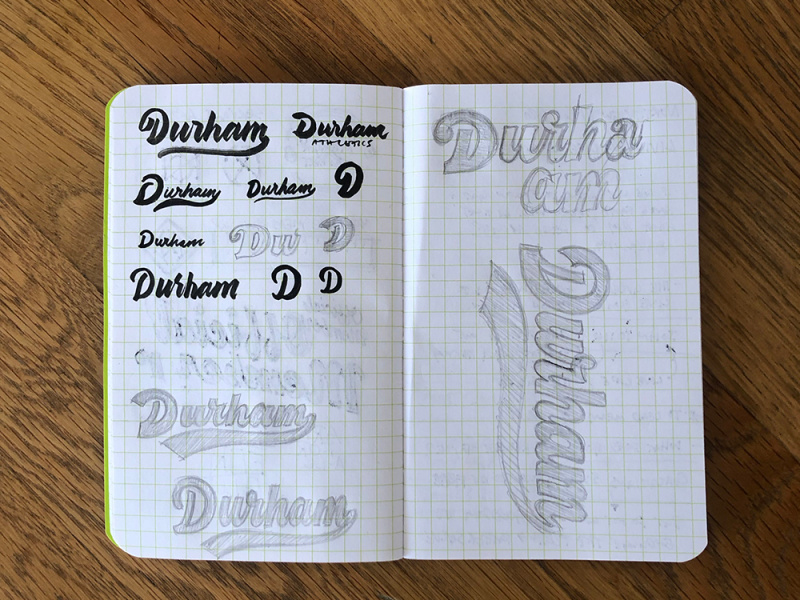 Durham Durham
ATHLETICS
Durham Durham D
Durham Dur D
Durham D D
Durham
Durham
Durha
am
Durham